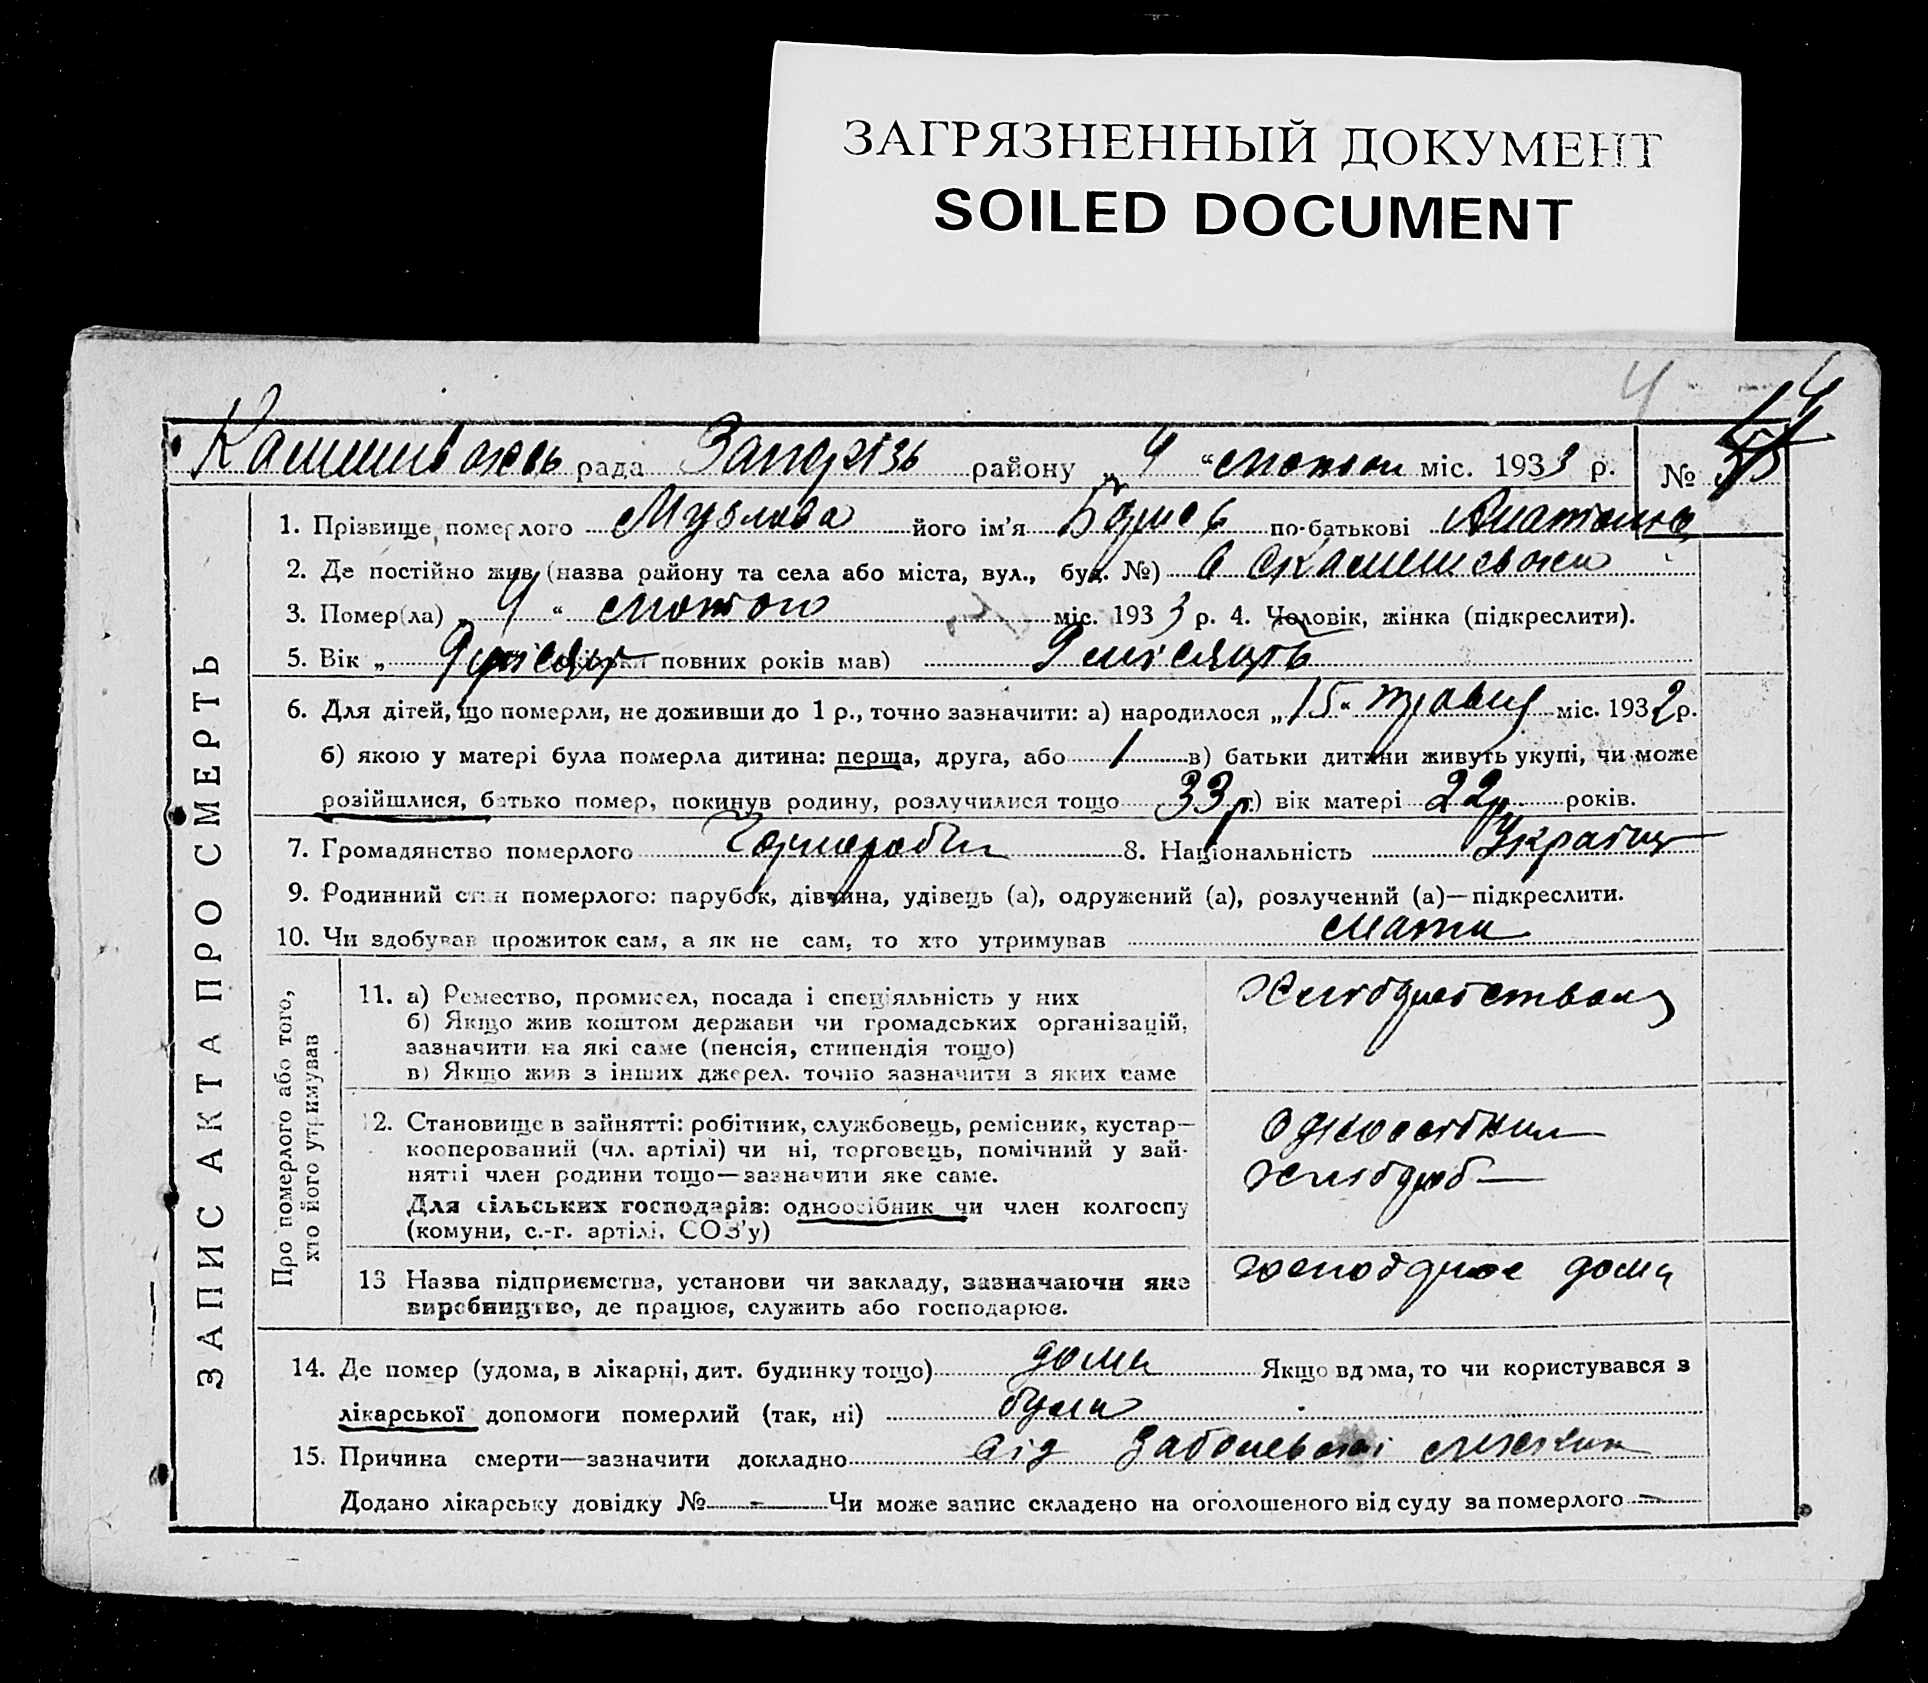 ЗАГРЯЗНЕННЫЙ ДОКУМЕНТ
SOILED DOCUMENT
4
рада району „ 4 “ лютого міс. 1933 р. №
ЗАПИС АКТА ПРО СМЕРТЬ
1. Прізвище померлого його ім'я по-батькові
2. Де постійно жив (назва району та села або міста, вул., буд. №) с
3. Помер(ла) „ 4 “ лютого міс. 1933 р. 4. Чоловік, жінка (підкреслити).
5. Вік „ 9 місяц повних років мав) 9 місяців
6. Для дітей, що померли, не доживши до 1 р., точно зазначити: а) народилося „ 15 “ травня міс. 1932 р.
б) якою у матері була померла дитина: перша, друга, або 1 в) батьки дитини живуть укупі, чи може
розійшлися, батько помер, покинув родину, розлучилися тощо 33 р. ) вік матері 22 р. років.
7. Громадянство померлого 8. Національність Україн
9. Родинний стан померлого: парубок, дівчина, удівець (а), одружений (а), розлучений (а)—підкреслити.
10. Чи здобував прожиток сам, а як не сам, то хто утримував мати
Про померлого або того,
хто його утримував
11. а) Ремество, промисел, посада і спеціяльність у них
б) Якщо жив коштом держави чи громадських організацій,
зазначити на які саме (пенсія, стипендія тощо)
в) Якщо жив з інших джерел. точно зазначити з яких саме
12. Становище в зайнятті: робітник, службовець, ремісник, кустар—
кооперований (чл. артілі) чи ні, торговець, помічний у зай-
нятті член родини тощо—зазначити яке саме.
Для сільських господарів: одноосібник чи член колгоспу
(комуни, с.-г. артілі, СОЗ'у)
13 Назва підприємства, установи чи закладу, зазначаючи яке
виробництво, де працює, служить або господарює.
дома
14. Де помер (удома, в лікарні, дит. будинку тощо) дома Якщо вдома, то чи користувався з
лікарської допомоги померлий (так, ні) була
15. Причина смерти—зазначити докладно від
Додано лікарську довідку № - Чи може запис складено на оголошеного від суду за померлого -